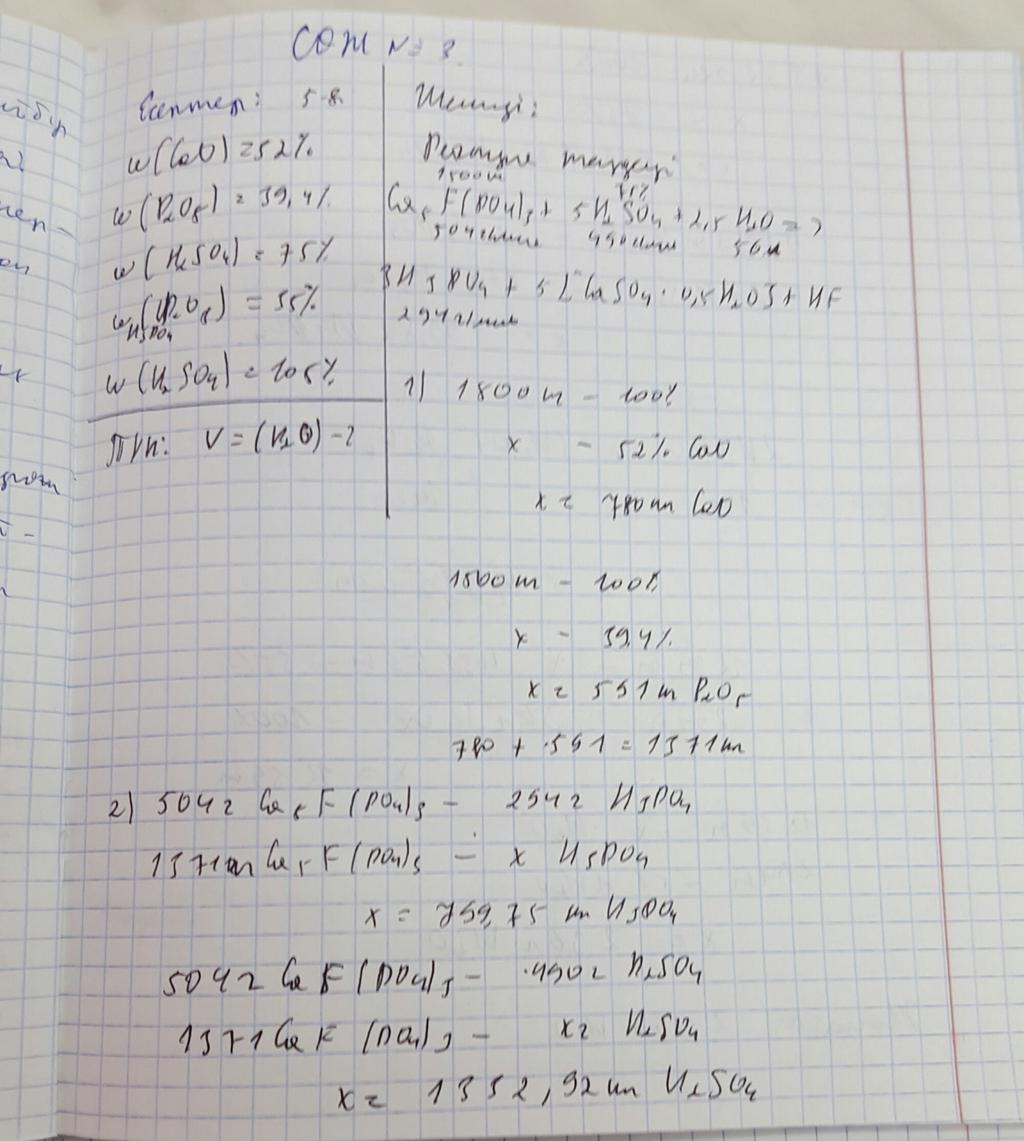 СӨЖ №3.
Есептер: 5-8.
w(CaO) = 52%.
w(P₂O₅) = 39,4%.
w(H₂SO₄) = 75%
w(P₂O₅) = 55%
H₃PO₄
w(H₂SO₄) = 105%
Т/к: V = (H₂O) - ?
Шешуі:
Реакция теңдеуі
1500т 75%
Ca₅F(PO₄)₃ + 5H₂SO₄ + 2,5 H₂O =>
504 г/моль 490 г/моль
3H₃PO₄ + 5[CaSO₄ · 0,5H₂O] + HF
294 г/моль
1) 1500т - 100%
x - 52% CaO
x = 780т CaO
1500т - 100%
x - 39,4%.
x = 591т P₂O₅
780 + 591 = 1371т
2) 504г Ca₅F(PO₄)₃ - 294г H₃PO₄
1371т Ca₅F(PO₄)₃ - x H₃PO₄
x = 799,75 т H₃PO₄
504г Ca F(PO₄)₃ - 490г H₂SO₄
1371 Ca F (PO₄)₃ - x = H₂SO₄
x = 1332,92т H₂SO₄